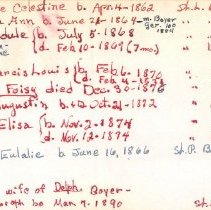 e Celestine b. Apr 4-1862 St. L.
Ann b. June 21-1864 - m. Boyer
dule b. July 5-1868 "
d. Feb 10-1869 (7 mo.) "
rancis Louis b. Feb 6-1870 "
d. 4-1874 "
Foisy died Dec 30-1876 "
Augustin b. Oct 21-1872 "
Elisa b. Nov. 2-1874 "
d. Nov. 12-1874 "
Eulalie b. June 16, 1866 St. P. B
wife of Delph. Boyer-
b. Mar 7-1890 St.